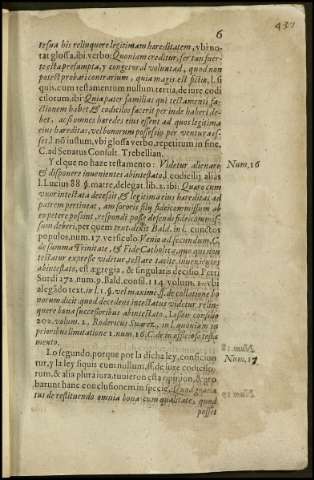 437
6
tesua his relinquere legitimam hæreditatem, vbi no-
tat glossa, ibi verbo: Quoniam creditur, fertan fuer-
to esta presumpta, y congetural voluntad, quod non
potest probari contrarium, quia magis est fictiu, l. si
quis, cum testamentum nullum, tertia, de iure codi
cillorum, ibi: Quia pater familias qui testamenti fa-
ctionem habet, & codicilos facerit per inde haberi de-
bet, ac si omnes hæredes eius essent ad quos legitima
eius hæreditas, vel bonorum possessio per ventura es-
set: l. nō iustum, vbi glossa verbo, repetitum in fine,
C. ad Senatus Consult. Trebellian.
Y el que no haze testamento: Videtur alienare Num. 16
& disponere inuenientes abintestato, l. codicilli, alias
l. Lucius 88. §. matre, delegat. lib. 2. ibi: Quæro cum
vxor intestata decessit, & legitima eius hæreditas ad
patrem pertineat, an soror filij fideicommissum ab
eo petere possint, respondi posse defendi fideicommis-
sum deberi, per quem text. dixit Bald. in l. cunctos
populos, num. 17. versiculo, Venio ad secundum, C.
de summa Trinitate, & Fide Catholica, quod quis non
testatur expresse videtur testare tacite inuenientes
abintestato, est ægregia, & singularis decisio Petri
Surdi 272. num. 9. Bald. consil. 114. volum. 1. vbi
alegādo text. in l. 1. §. vel maxime, ff. de collatione bo
norum dicit quod decedens intestatus videtur relin-
quere bona successoribus abintestato, Iasson consilio
202. volum. 2. Rodericus Suarez, in l. quoniam in
prioribus limitatione 1. num. 16. C. de inofficioso testa
mento.
Lo segundo, porque por la dicha ley, conficiun Num. 17
tur, y la ley si quis cum nullum, ff. de iure codicillo-
rum, & alia plura iura, tuuieron esta opinion, & pro-
barunt hanc conclusionem in specie, Quod grauatus
tur de restituendo omnia bona cum qualitate, quod
posset